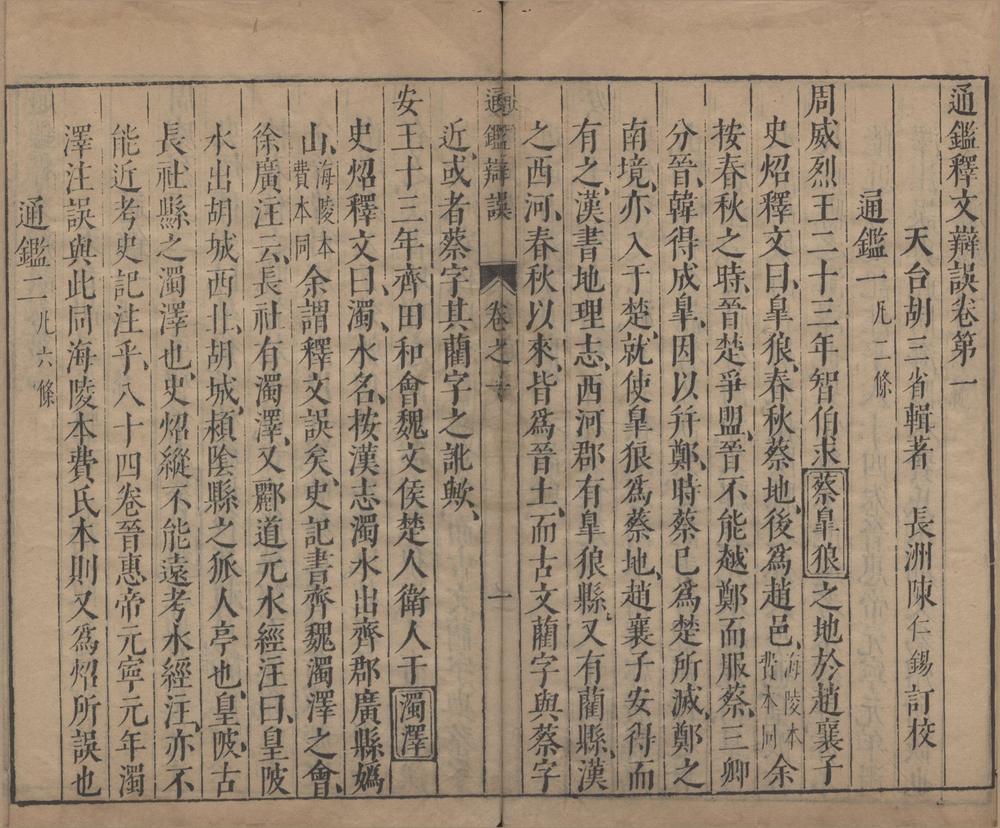 通鑑釋文辯誤卷第一
天台胡三省輯著 長洲陳仁錫訂校
通鑑一 凡二條
周威烈王二十三年智伯求蔡皐狼之地於趙襄子
史炤釋文曰皐狼春秋蔡地後爲趙邑海陵本費本同余
按春秋之時晉楚爭盟晉不能越鄭而服蔡三卿
分晉韓得成皐因以幷鄭時蔡已爲楚所滅鄭之
南境亦入于楚就使皐狼爲蔡地趙襄子安得而
有之漢書地理志西河郡有皐狼縣又有藺縣漢
之西河春秋以來皆爲晉土而古文藺字與蔡字
通鑑辯誤 卷之一 一
近或者蔡字其藺字之訛歟
安王十三年齊田和會魏文侯楚人衛人于濁澤
史炤釋文曰濁水名按漢志濁水出齊郡廣縣嬀
山海陵本費本同余謂釋文誤矣史記書齊魏濁澤之會
徐廣注云長社有濁澤又酈道元水經注曰皇陂
水出胡城西北胡城潁陰縣之狐人亭也皇陂古
長社縣之濁澤也史炤縱不能遠考水經注亦不
能近考史記注乎八十四卷晉惠帝元寧元年濁
澤注誤與此同海陵本費氏本則又爲炤所誤也
通鑑二 凡六條